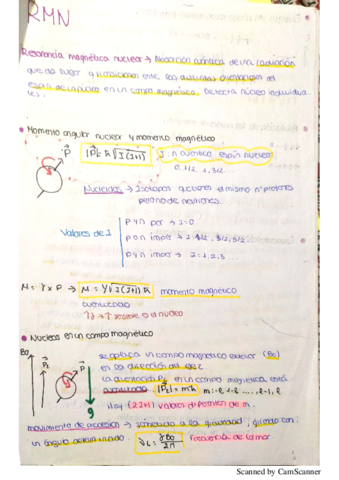 RMN
Resonancia magnética nuclear → Absorción cuántica de una radiación
que da lugar a transiciones entre las distintas orientaciones del
espín del núcleo en un campo magnético. Detecta núcleo individua
les.
• Momento angular nuclear y momento magnético
P |P|= ħ√I(I+1) I: n cuántico espín nuclear
0, 1/2, 1, 3/2..
Nucleidos → Isótopos que tienen el mismo nº protones
pero no de neutrones.
Valores de I
p y n par → I=0
p o n impar → I= 1/2, 3/2, 5/2...
p y n impar → I=1,2,3...
M = γ × P → M = γ√I(I+1) ħ momento magnético
cuantizado
• Núcleos en un campo magnético
B0 Pz P
se aplica un campo magnético exterior (B0)
en la dirección del eje z
La Pz en un campo magnética está
|Pz| = m ħ
Hay (2I+1) valores diferentes de m.
movimiento de precesión → sometido a la gravedad, girando con
un ángulo determinado. νL = γB0/2π Frecuencia de Larmor
Scanned by CamScanner